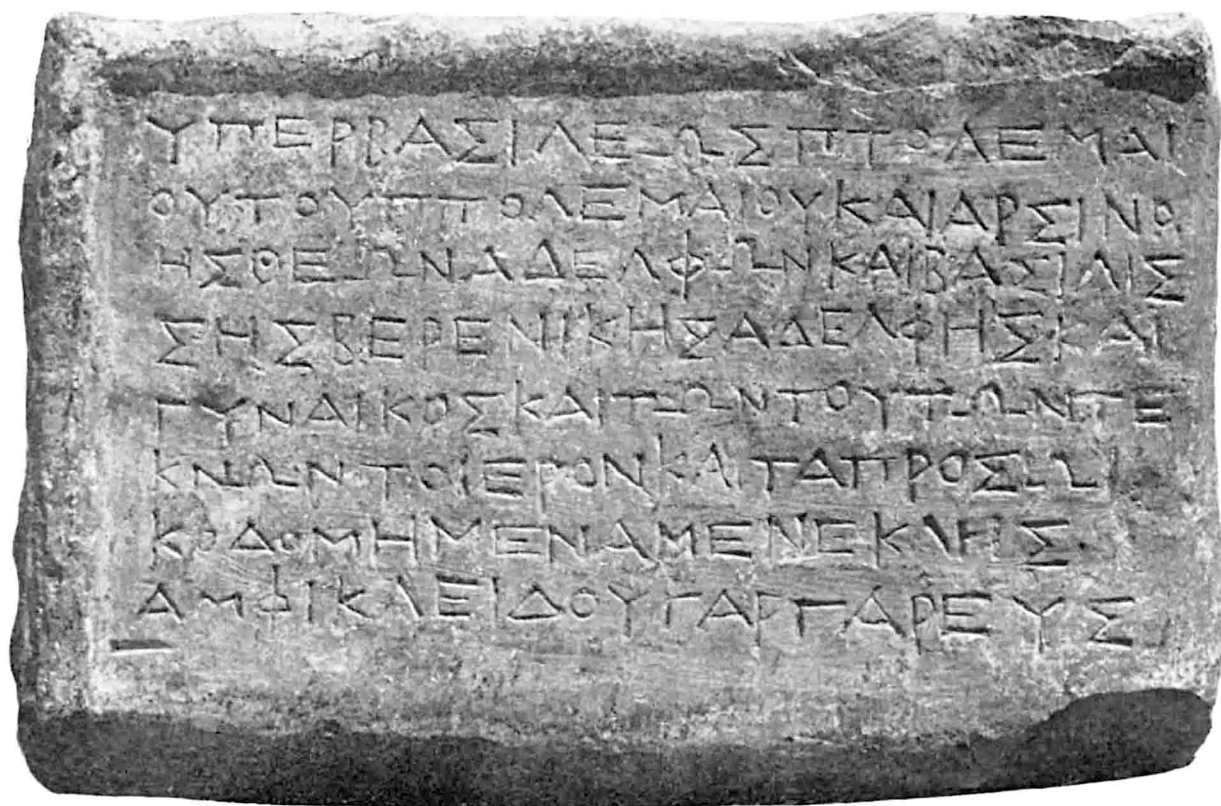 ΥΠΕΡΒΑΣΙΛΕΩΣΠΤΟΛΕΜΑΙ
ΟΥΤΟΥΠΤΟΛΕΜΑΙΟΥΚΑΙΑΡΣΙΝΟ
ΗΣΘΕΩΝΑΔΕΛΦΩΝΚΑΙΒΑΣΙΛΙΣ
ΣΗΣΒΕΡΕΝΙΚΗΣΑΔΕΛΦΗΣΚΑΙ
ΓΥΝΑΙΚΟΣΚΑΙΤΩΝΤΟΥΤΩΝΤΕ
ΚΝΩΝΤΟΙΕΡΟΝΚΑΙΤΑΠΡΟΣΩΙ
ΚΟΔΟΜΗΜΕΝΑΜΕΝΕΚΛΗΣ
ΑΜΦΙΚΛΕΙΔΟΥΓΑΡΓΑΡΕΥΣ